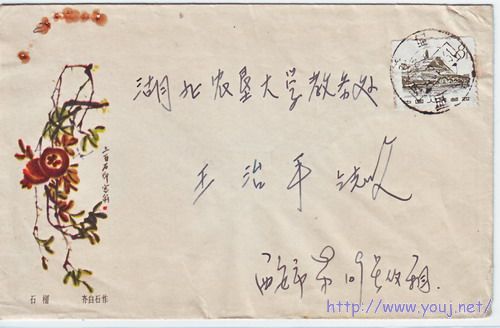 湖北农垦大学教务处
王治平 收
西安市
中国人民邮政
8
三百石印富翁
石榴 齐白石作
http://www.youj.net/